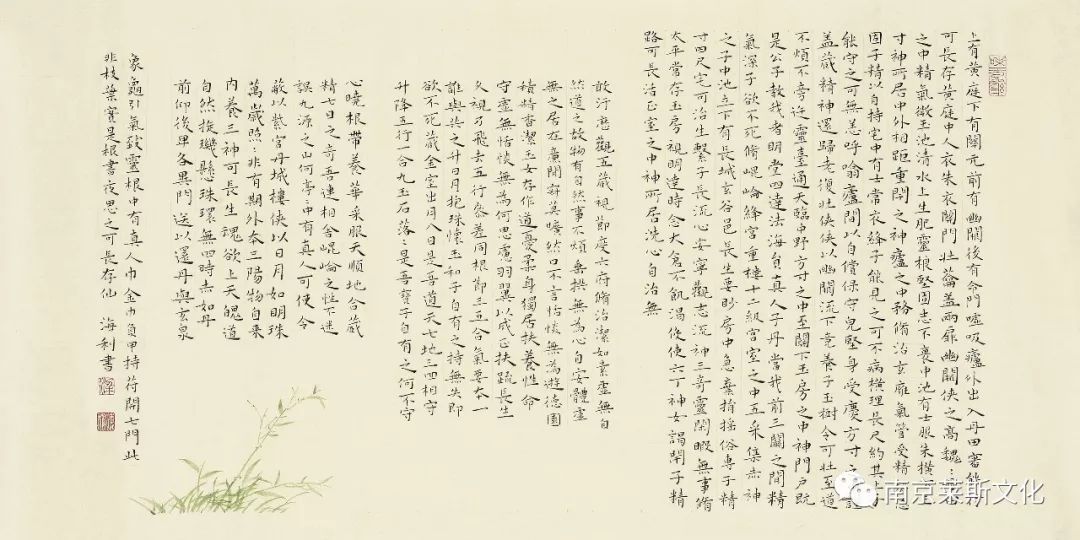 上有黄庭下有關元前有幽闕後有命門噓吸廬外出入丹田審能行
可長存黄庭中人衣朱衣關門壯蘥蓋兩扉幽闕俠之高魏〻丹田
之中精氣微玉池清水上生肥靈根堅固志不衰中池有士服朱
寸神所居中外相距重閉之神廬之中務脩治玄廱氣管受精
固子精以自持宅中有士常衣絳子能見之可不病橫理長尺約其
能守之可無恙呼噏廬間以自償保守兒堅身受慶方寸之
蓋藏精神還歸老復壯俠以幽闕流下竟養子玉樹令可壯至道
不煩不旁迕靈臺通天臨中野方寸之中至關下玉房之中神門户既
是公子教我者明堂四達法海員真人子丹當我前三關之間精
氣深子欲不死脩崐崘絳宫重樓十二級宫室之中五采集赤神
之子中池立下有長城玄谷邑長生要眇房中急棄捐搖俗專子精
寸田尺宅可治生繫子長流心安寧觀志流神三奇靈閑暇無事脩
太平常存玉房視明達時念大倉不飢渴使使六丁神女謁閉子精
路可長活正室之中神所居洗心自治無
敢汙歷觀五藏視節度六府脩治潔如素虛無自
然道之故物有自然事不煩垂拱無為心自安體虛
無之居在廉間寂莫曠然口不言恬惔無為遊德園
積精香潔玉女存作道憂柔身獨居扶養性命
守虛無恬惔無為何思慮羽翼以成正扶疏長生
久視乃飛去五行參差同根節三五合氣要本一
誰與共之升日月抱珠懷玉和子自有之持無失即
欲不死藏金室出月入日是吾道天七地三回相守
升降五行一合九玉石落〻是吾寶子自有之何不守
心曉根帶養華采服天順地合藏
精七日之奇吾連相舍崐崘之性不迷
誤九源之山何亭〻中有真人可使令
蔽以紫宫丹城樓俠以日月如明珠
萬歲照〻非有期外本三陽物自来
内養三神可長生魂欲上天魄道
自然旋璣懸珠環無四時赤如丹
前仰後卑各異門送以還丹與玄泉
象龜引氣致靈根中有真人巾金巾負甲持苻開七門此
非枝葉實是根晝夜思之可長存仙 海利書
南京莱斯文化